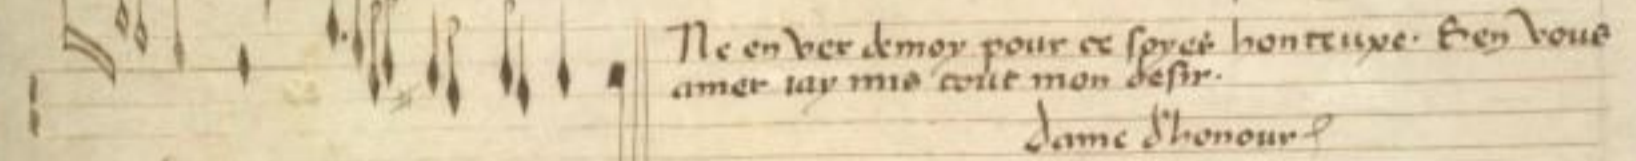 Ne en ver de moy pour ce soyes honteuxe. Se en vous
amer iay mis tout mon desir.
dame d'honour